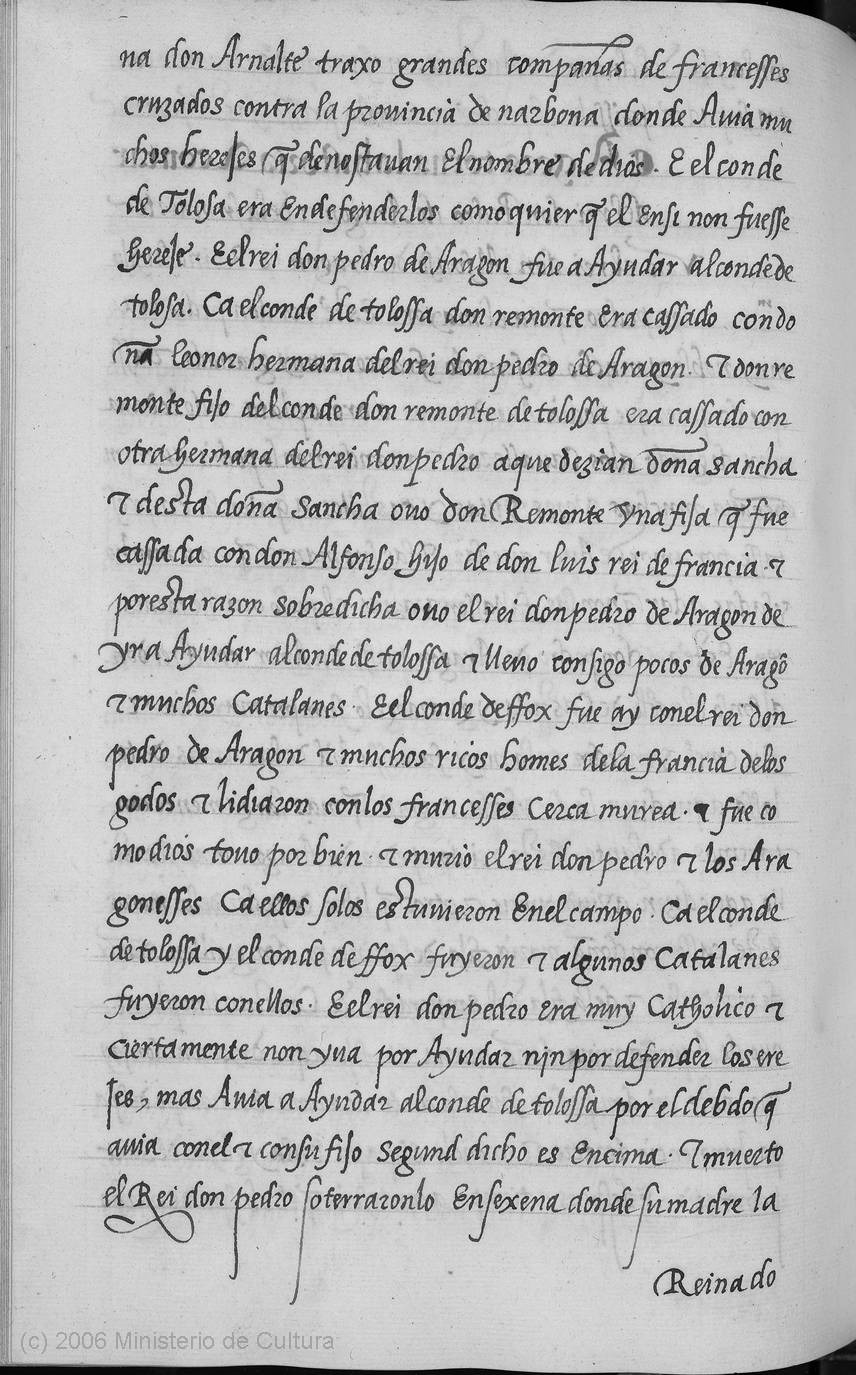 na don Arnalte traxo grandes compañas de francesses
cruzados contra la prouincia de narbona donde Auia mu
chos herejes q̃ denostauan El nombre de dios. E el conde
de Tolosa era En defenderlos como quier q̃ el Ensi non fuesse
hereje. E el rei don pedro de Aragon fue a Ayudar al conde de
tolosa. Ca el conde de tolossa don remonte Era cassado con do
ña leonor hermana del rei don pedro de Aragon. ⁊ don re
monte fijo del conde don remonte de tolossa era cassado con
otra hermana del rei don pedro a que dezian doña sancha
⁊ desta doña Sancha ouo don Remonte Vna fija q̃ fue
cassada con don Alfonso hijo de don luis rei de francia ⁊
por esta razon sobredicha ouo el rei don pedro de Aragon de
yr a Ayudar al conde de tolossa ⁊ lleuo consigo pocos de Aragõ
⁊ muchos Catalanes. E el conde de ffox fue ay con el rei don
pedro de Aragon ⁊ muchos ricos homes de la francia de los
godos ⁊ lidiaron con los francesses Cerca murea. ⁊ fue co
mo dios touo por bien. ⁊ murio el rei don pedro ⁊ los Ara
gonesses Ca ellos solos estuuieron En el campo. Ca el conde
de tolossa y el conde de ffox fuyeron ⁊ algunos Catalanes
fuyeron con ellos. E el rei don pedro Era muy Catholico ⁊
ciertamente non yua por Ayudar nin por defender los ere
jes, mas Auia a Ayudar al conde de tolossa por el debdo q̃
auia con el ⁊ con su fijo segund dicho es Encima. ⁊ muerto
el Rei don pedro soterraronlo En sexena donde su madre la
Reinado
(c) 2006 Ministerio de Cultura